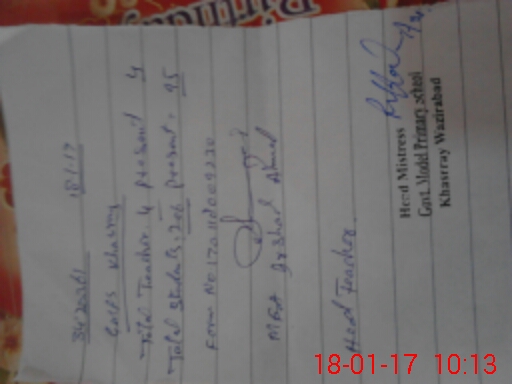 Birthday
34120261 18-1-17
GGPS Khasray
Total Teacher. 4 present 4
Total Students. 206 present. 95
Form No
MEA Arshad Ahmad
Head Teacher
Head Mistress
Govt. Model Primary School
Khasrray Wazirabad
18-01-17 10:13